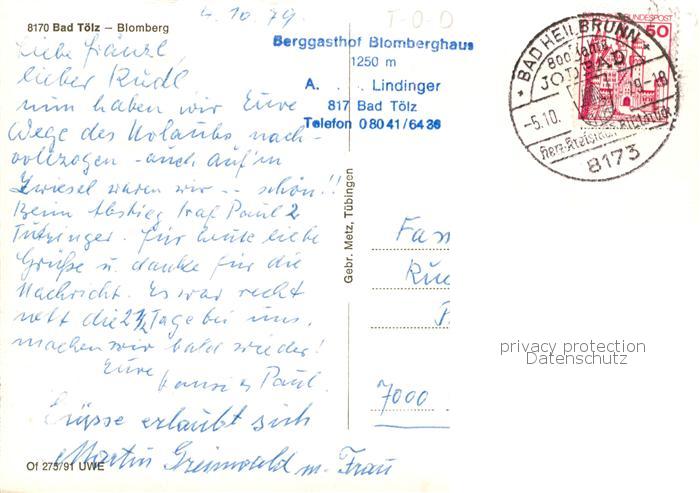 4.10.79
T-O-D
8170 Bad Tölz – Blomberg
Liebe Fränzl,
lieber Rudl
nun haben wir Eure
Wege des Urlaubs nach-
vollzogen - auch auf'm
Zwiesel waren wir -- schön!!
Beim Abstieg traf Paul 2
Tutzinger. Für heute liebe
Grüße u. danke für die
Nachricht. Es war recht
nett die 2½ Tage bei uns,
machen wir bald wieder!
Eure
Hansi & Paul.
Grüsse erlaubt sich
Martin Greinwald m. Frau
Of 275/91 UWE
Berggasthof Blomberghaus
1250 m
A. Lindinger
817 Bad Tölz
Telefon 08041/6436
Gebr. Metz, Tübingen
BUNDESPOST
50
BAD HEILBRUNN
800 Jahre
JODBAD
-5.10. 79-18
Herz-Kreislauf
8173
Fam
7000
privacy protection
Datenschutz